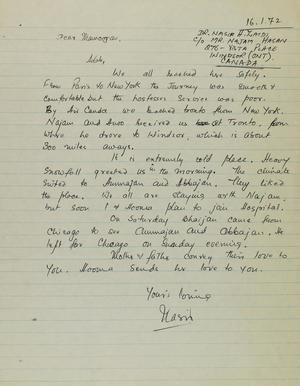 16.1.72
DR. NASIR H. ZAIDI
C/O MR. NAJAM. HASAN
VISTA PLACE
WINDSOR (ONT).
CANADA
Dear Manoogian
We all reached here safely.
From Paris to New York the journey was smooth &
comfortable but the hostesses service was poor.
By Air Canda we reached Tronto from New York.
Najam and received us at Tronto, from
where he drove to Windsor, which is about
300 miles away.
It is extremely cold place. Heavy
snowfall greeted us in the morning. The climate
suited to Ammajan and Abbajan. They liked
the place. We all are staying with Najam.
but soon I & Hooma plan to join Hospital.
On Saturday Bhaijan came from
Chicago to see Ammajan and Abbajan. He
left for Chicago on Sunday evening.
Mother & father convey their love to
you. Hooma sends her love to you.
Your's loving
Nasir